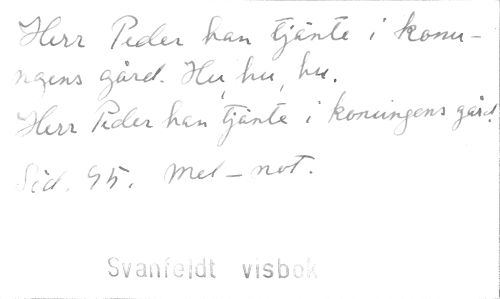 Herr Peder han tjänte i konu-
ngens gård. Hu, hu, hu.
Herr Peder han tjänte i konungens gård.
Sid. 95. Mel-not.
Svanfeldt visbok